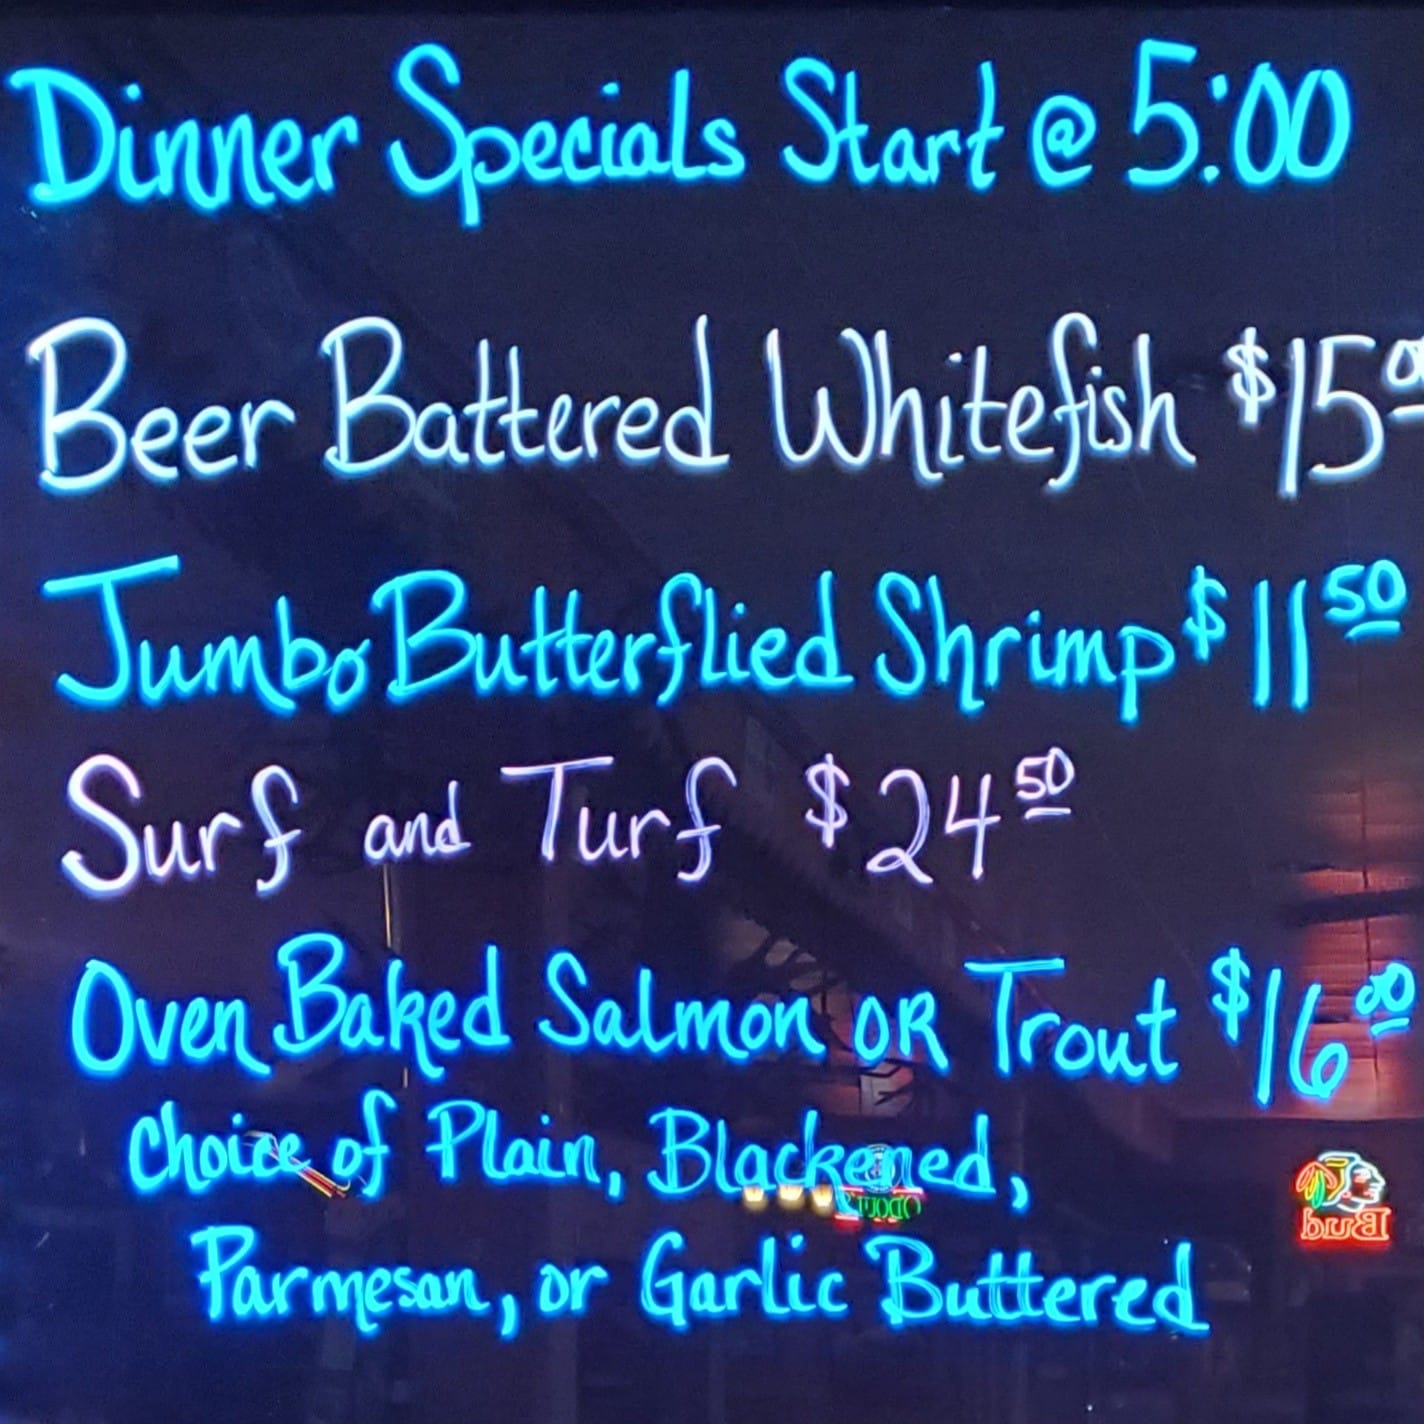 Dinner Specials Start @ 5:00
Beer Battered Whitefish $15.00
Jumbo Butterflied Shrimp $11.50
Surf and Turf $24.50
Oven Baked Salmon OR Trout $16.00
Choice of Plain, Blackened,
Parmesan, or Garlic Buttered
Bud